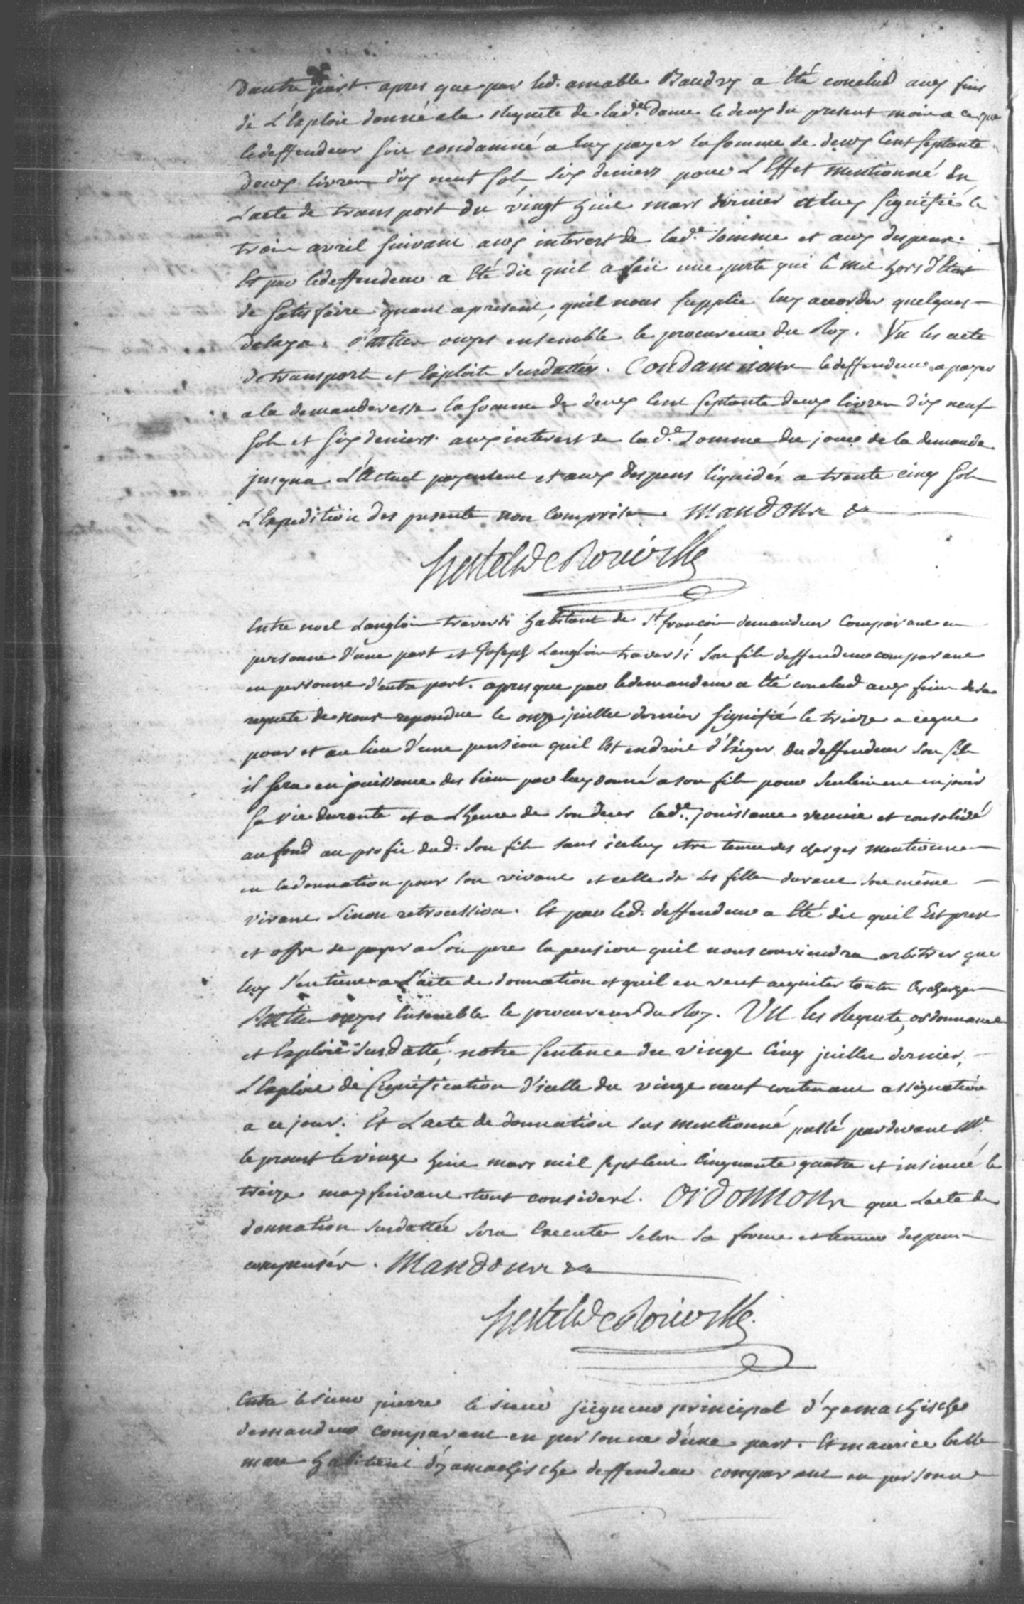 Dautre part. apres que par led. amable Baudry a Eté conclud aux fins
de L'Exploit donné ala Requete de lad.e Dame le deux du present mois a ce que
le deffendeur soit condamné a luy payer la somme de deux Cent septante
deux livres dix neuf sols six deniers pour L'Effet mentionné En
L'acte de transport du vingt huit mars dernier et luy signifié le
trois avril suivant aux interest de lad.e somme et aux depens.
Et par le deffendeur a Eté dit quil a fait une perte qui le met hors d'Etat
de satisfaire quant apresent, quil nous supplie luy accorder quelques
delays. Parties ouyes ensemble le procureur du Roy. Vu les acte
de transport et Exploit susdattés. Condamnons le deffendeur a payer
a la demanderesse la somme de deux Cent septante deux livres dix neuf
sols et six deniers aux interest de lad.e Somme du jour de la demande
jusqua L'Actuel payement et aux depens liquidés a trente cinq sols
L'Expedition des presente non comprise. Mandons &
Hertel De Rouville
Entre noel Langlois traversi habitant de St francois demandeur Comparant en
personne d'une part et Joseph Langlois traversi son fils deffendeur comparant
en personne d'autre part. apres que par le demandeur a Eté conclud aux fins de sa
requete de nous repondue le onze juillet dernier signifié le treize a ce que
pour et au lieu d'une pension quil Est en droit d'Exiger du deffendeur son fils
il sera en jouissance des biens par luy donné a son fils pour seulement en jouir
sa vie durante et a L'heure de son deces lad.e jouissance reunie et consolidé
au fond au profit dud. son fils sans iceluy etre tenu des charges mentionnée
en la donnation pour son vivant et celle de ses filles durant son même
vivant Sinon retrocession. Et par led. deffendeur a Eté dit quil Est prest
et offre de payer a son pere la pension quil nous conviendra arbitrer que
luy s'en tient a L'acte de donnation et quil en veut acquiter toutes les charges
Parties ouyes Ensemble le procureur du Roy. VU les Requete, ordonnance
et Exploit susdatté, notre sentence du vingt cinq juillet dernier,
L'Exploit de signification d'icelle du vingt neuf contenant assignation
a ce jour. Et L'acte de donnation sus mentionné passé pardevant Me.
le proust le vingt huit mars mil sept cent cinquante quatre et insinué le
treize may suivant tout consideré. Ordonnons que L'acte de
donnation susdattée sera Executé selon sa forme et teneur depens
compensés. Mandons &
Hertel De Rouville
Entre le sieur pierre le sieur seigneur principal d'yamachiche
demandeur comparant en personne d'une part. Et maurice belle
mare habitant d'yamachiche deffendeur comparant en personne